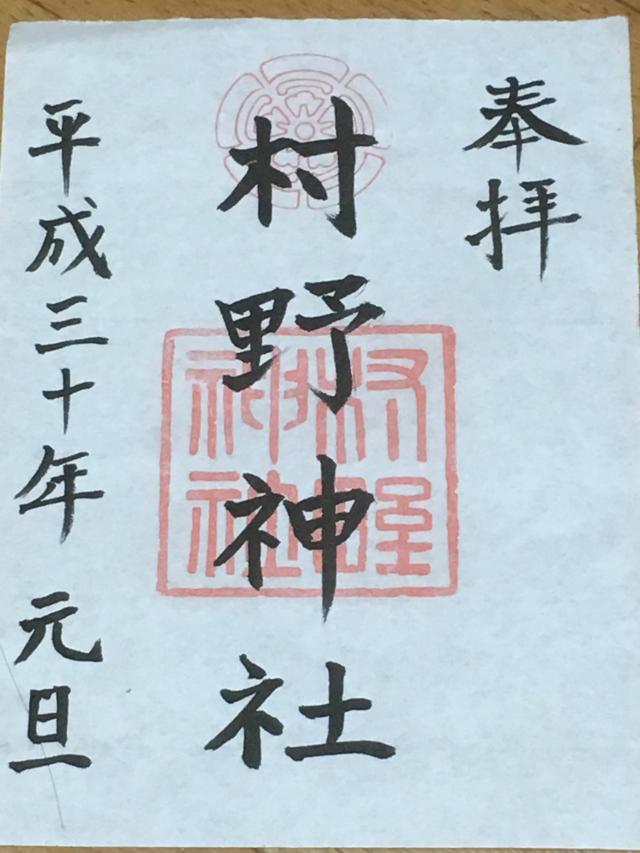 奉拝
村野神社
平成三十年 元旦